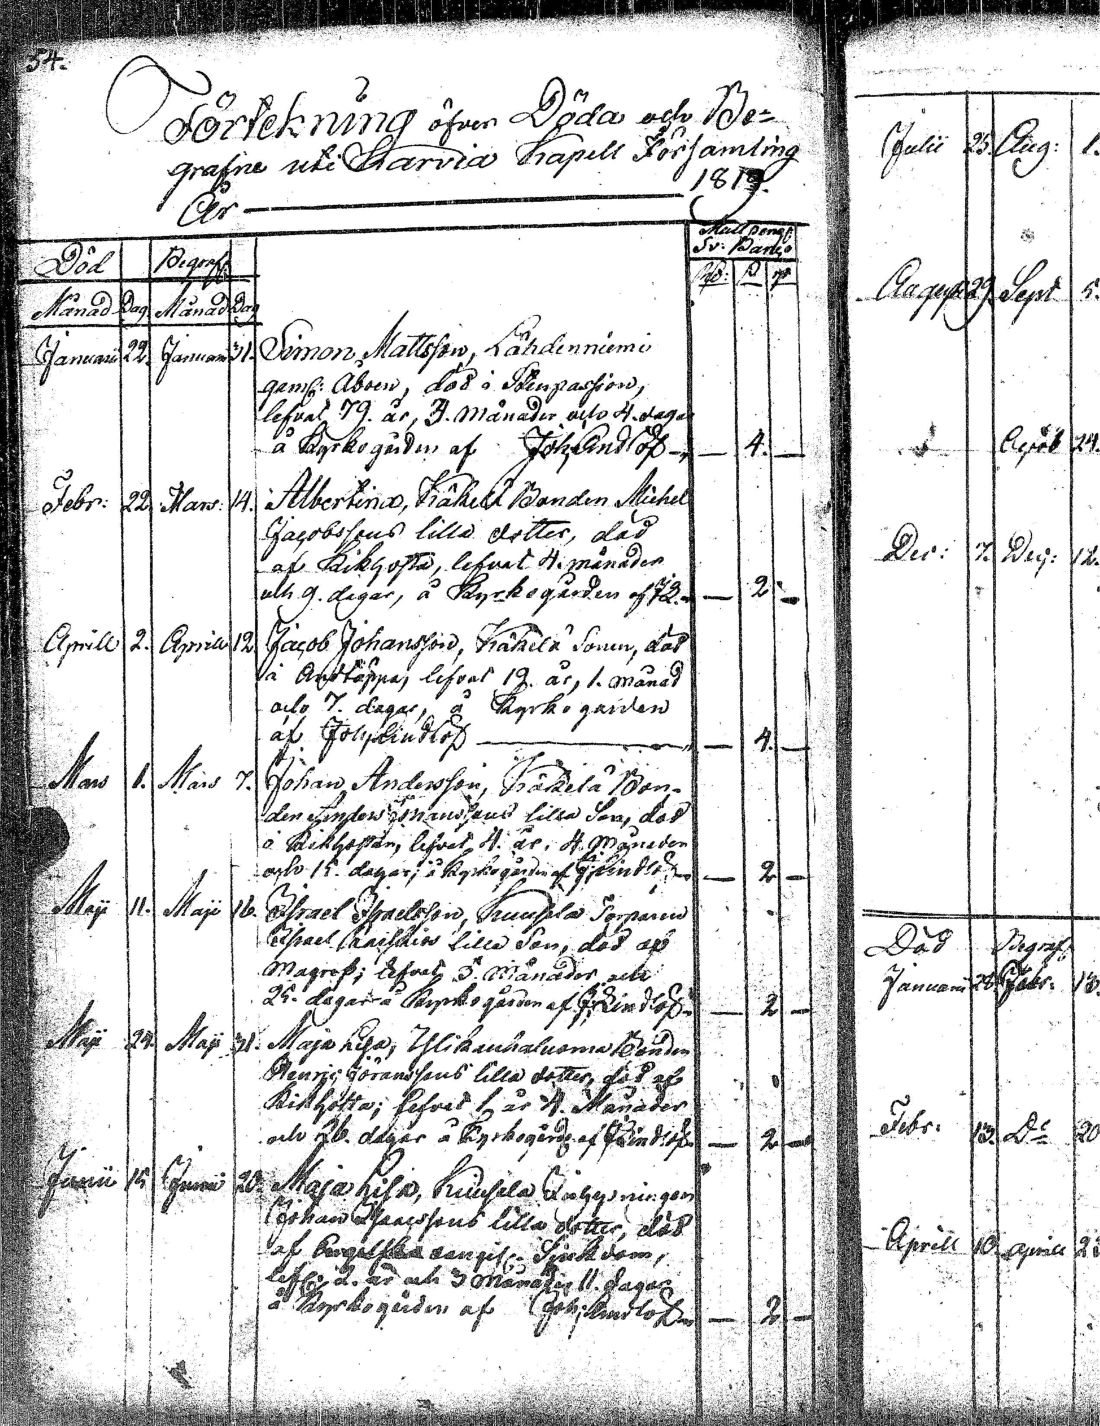 54.
Förtekning öfver Döda och Be=
grafne uti Karvia Kapell Församling
År 1819.
Död Begrafn
Månad Dag Månad Dag
Sv: Banco
Januarii 22. Januarii 31. Simon Mattsson, Lähdenniemi
gaml: Åboen, död i Stenpassion,
lefvat 79. år, 3. Månader och 4. dagar
å Kyrkogården af Joh, Lindlöf — 4. —
Febr: 22 Mars: 14. Albertina, Käkelä Bonden Michel
Jacobssons lilla dotter, död
af Kikhosta, lefvat 4. månader
och 9. dagar, å Kyrkogården af — 2 —
Aprill 2. Aprill 12 Jacob Johansson, Käkelä Sonen, död
i Andtäppa, lefvat 19. år, 1. månad
och 7. dagar, å Kyrkogården
af Joh, Lindlöf — 4. —
Mars 1. Mars 7. Johan Andersson, Käkelä Bon-
den Anders lilla Son, död
i Kikhostan, lefvat 4. år, 4. Månader
och 15. dagar, å Kyrkogården af J, Lindlöf — 2 —
Maji 11. Maji 16. Israel Israelsson, Kuusela Torparen
Israel lilla Son, död af
Magref; lefvat 3. Månader och
25. dagar å Kyrkogården af J, Lindlöf — 2 —
Maji 24. Maji 31. Maja Lisa, Ylikauhaluoma Bonden
Henric Göranssons lilla dotter, död af
Kikhosta; lefvat 1 år 4. Månader
och 26. dagar å Kyrkogårdn af J, Lindlöf — 2 —
Junii 15 Junii 20. Maja Lisa, Kuusela Inhysningen
Johan Isaacssons lilla dotter, död
af Sjukdom,
lefv: 2. år och 3 Månader 11. dagar
å Kyrkogården af Joh; Lindlöf — 2 —
Julii 25. Aug: 1.
August 29. Sept 5.
24.
Dec: 7. Dec: 12.
Död Begraf:
Januarii 28 Febr. 13.
Febr: 13. Do 20
Aprill 10. Aprill 23